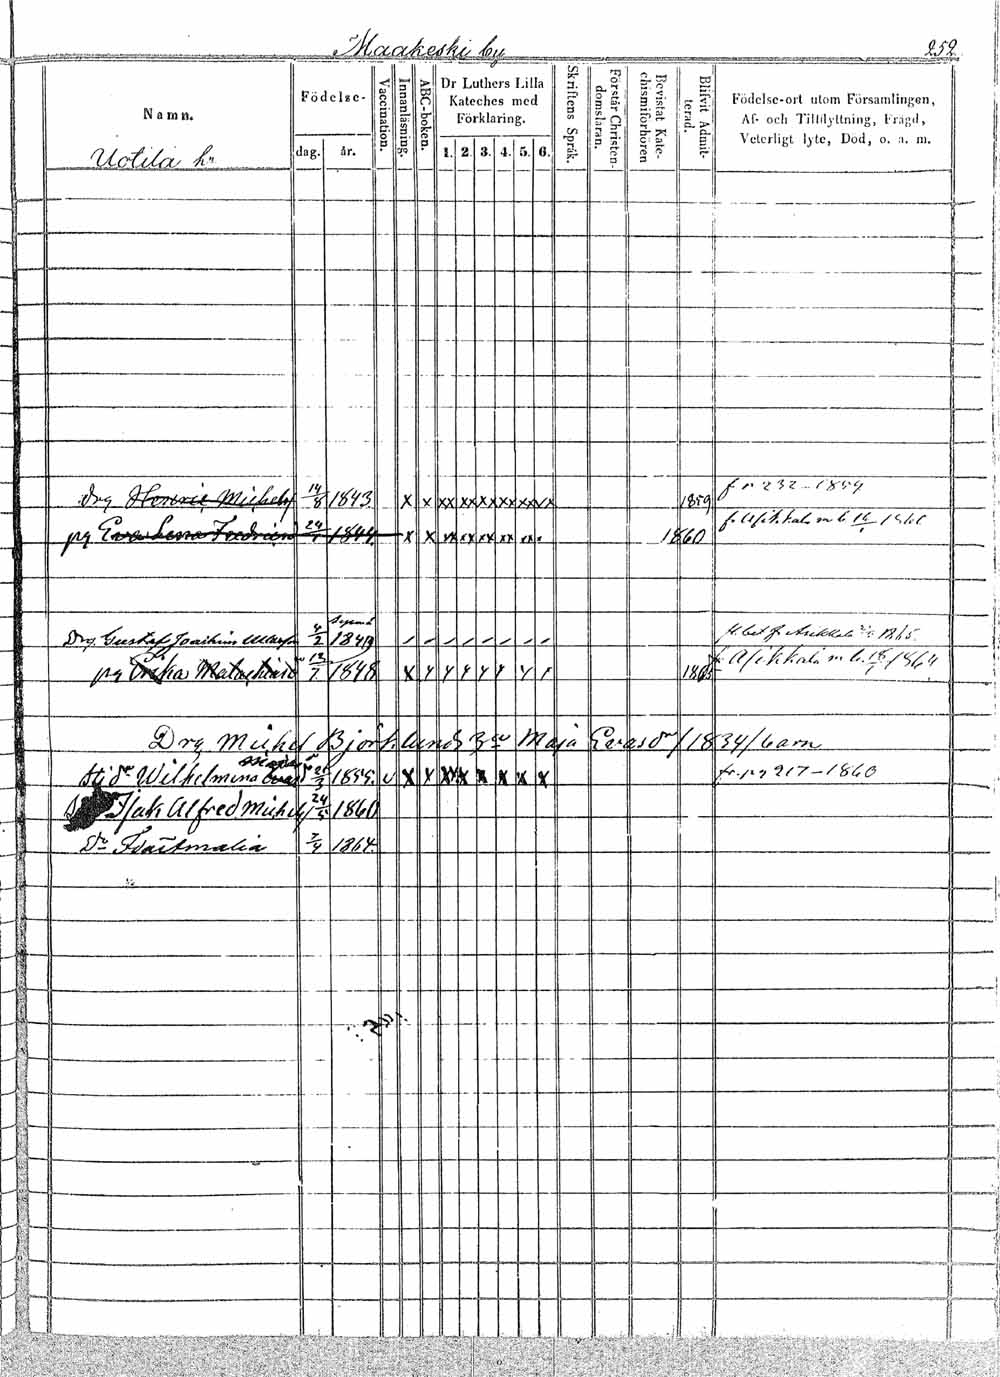 Maakeski by
252
Namn.
Födelse-
dag. år.
Vaccination.
Innanläsning.
ABC-boken.
Dr Luthers Lilla
Kateches med
Förklaring.
1. 2. 3. 4. 5. 6.
Skriftens Språk.
Förstår Christen-
domsläran.
Bevistat Kate-
chismiförhören
Blifvit Admit-
terad.
Födelse-ort utom Församlingen,
Af- och Tillflyttning, Frägd,
Veterligt lyte, Död, o. s. m.
Uotila hn
Drg Henric Michelsf 14/8 1843 x x xx xx xx xx xx xx 1859 fr 232-1859
pg Eva Lena 24 1844 x x xx xx xx xx xx 1860
Drg Gustaf Joachim 4/2 1849 1865
pg Erika 12/7 1848 x 1865 fr Asikkala m b. 1864
Drg Michel Björklunds Maja Evasdr /1834/ barn
Wilhelmina 1855 v x x x x x x x x fr. pg 217-1860
Isak Alfred Michelsf 24/5 1860
Dr 7/4 1864